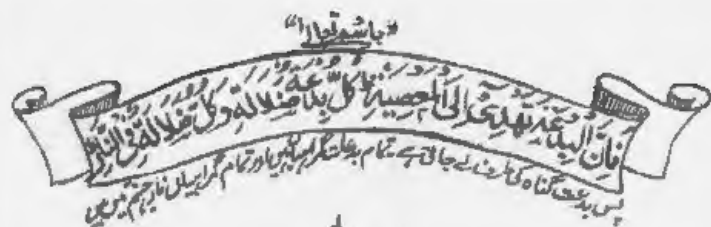 "باسمہ تعالیٰ"
فَاِنَّ الْبِدْعَةَ تَهْدِیْ اِلَی الْمَعْصِیَةِ کُلُّ بِدْعَةٍ ضَلَالَةٌ وَ کُلُّ ضَلَالَةٍ فِی النَّارِ
پس بدعت گناہ کی طرف لے جاتی ہے۔ تمام بدعات گمراہیاں ہیں اور تمام گمراہیاں نار جہنم میں ہیں